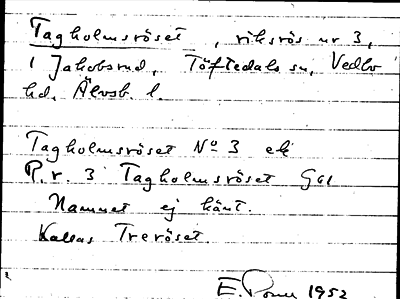 Tagholmsröset, riksrös nr 3,
i Jakobsrud, Töftedals sn, Vedbo
hd, Älvsb. l.
Tagholmsröset No 3 ek
R.r. 3 Tagholmsröset GK1
Namnet ej känt.
Kallas Treröset.
E. 1952